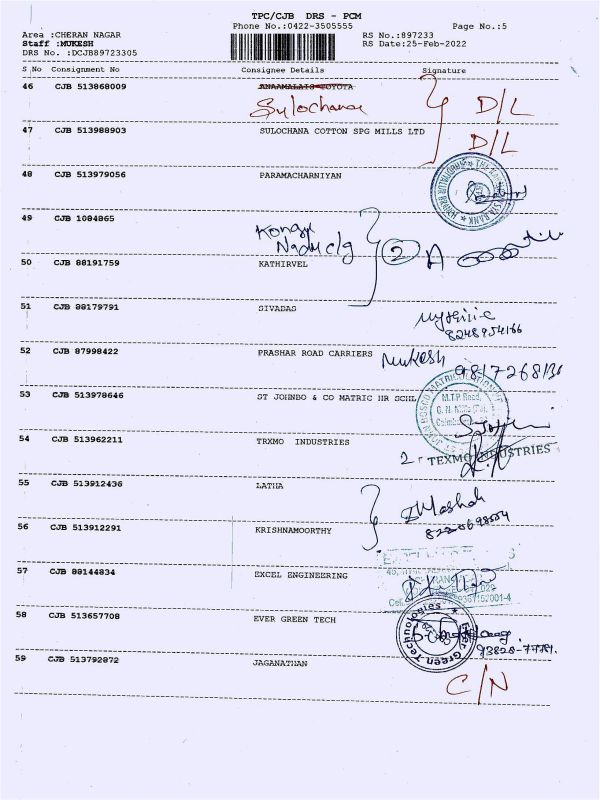 TPC/CJB DRS - PCM
Phone No.:0422-3505555
Page No.:5
Area :CHERAN NAGAR
RS No.:897233
Staff :MUKESH
RS Date:25-Feb-2022
DRS No. :DCJB89723305
S No Consignment No Consignee Details Signature
46 CJB 513868009 ANAAMALAIS TOYOTA
Sulochana D/L
47 CJB 513988903 SULOCHANA COTTON SPG MILLS LTD D/L
48 CJB 513979056 PARAMACHARNIYAN
49 CJB 1084865
2
50 CJB 88191759 KATHIRVEL
51 CJB 88179791 SIVADAS
8248954166
52 CJB 87998422 PRASHAR ROAD CARRIERS Mukesh
53 CJB 513978646 ST JOHNBO & CO MATRIC HR SCHL
M.T.P. Road,
54 CJB 513962211 TRXMO INDUSTRIES
2- TEXMO INDUSTRIES
55 CJB 513912436 LATHA
56 CJB 513912291 KRISHNAMOORTHY
57 CJB 88144834 EXCEL ENGINEERING
58 CJB 513657708 EVER GREEN TECH
Ever Green Technologies
59 CJB 513792872 JAGANATHAN
C/N